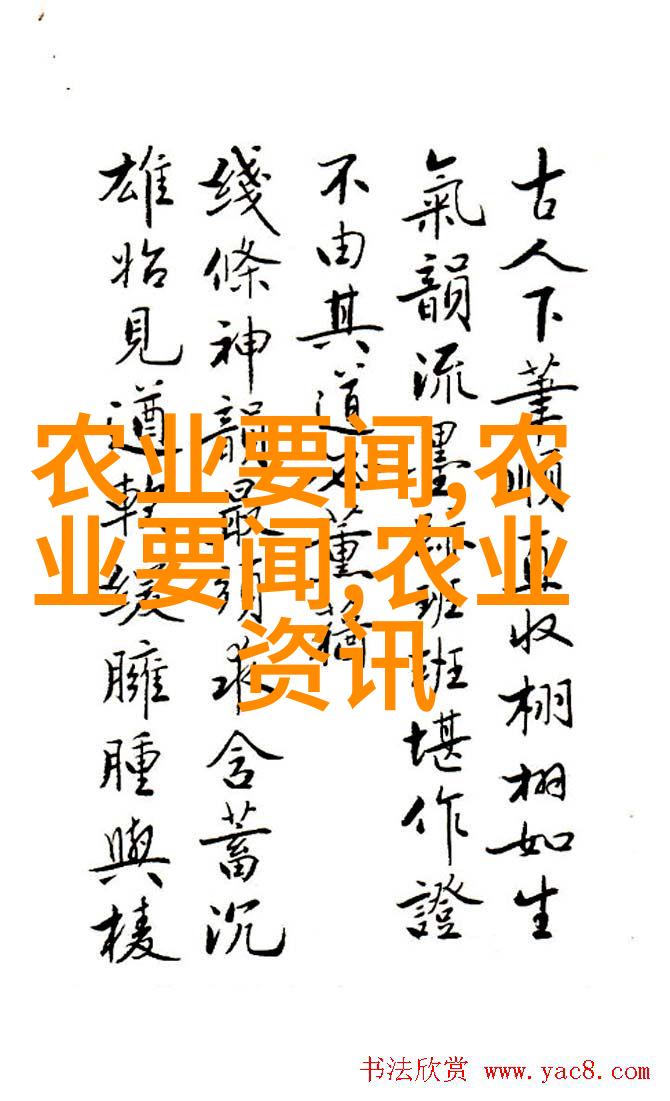 古人下筆順直收栩栩如生
氣韻流墨班班堪作證
不由其道
線條神韻最
含蓄沉
雄始見遒
緩臃腫與棱
农业要闻,农
业要闻,农业
资讯
书法欣赏 www.yac8.com